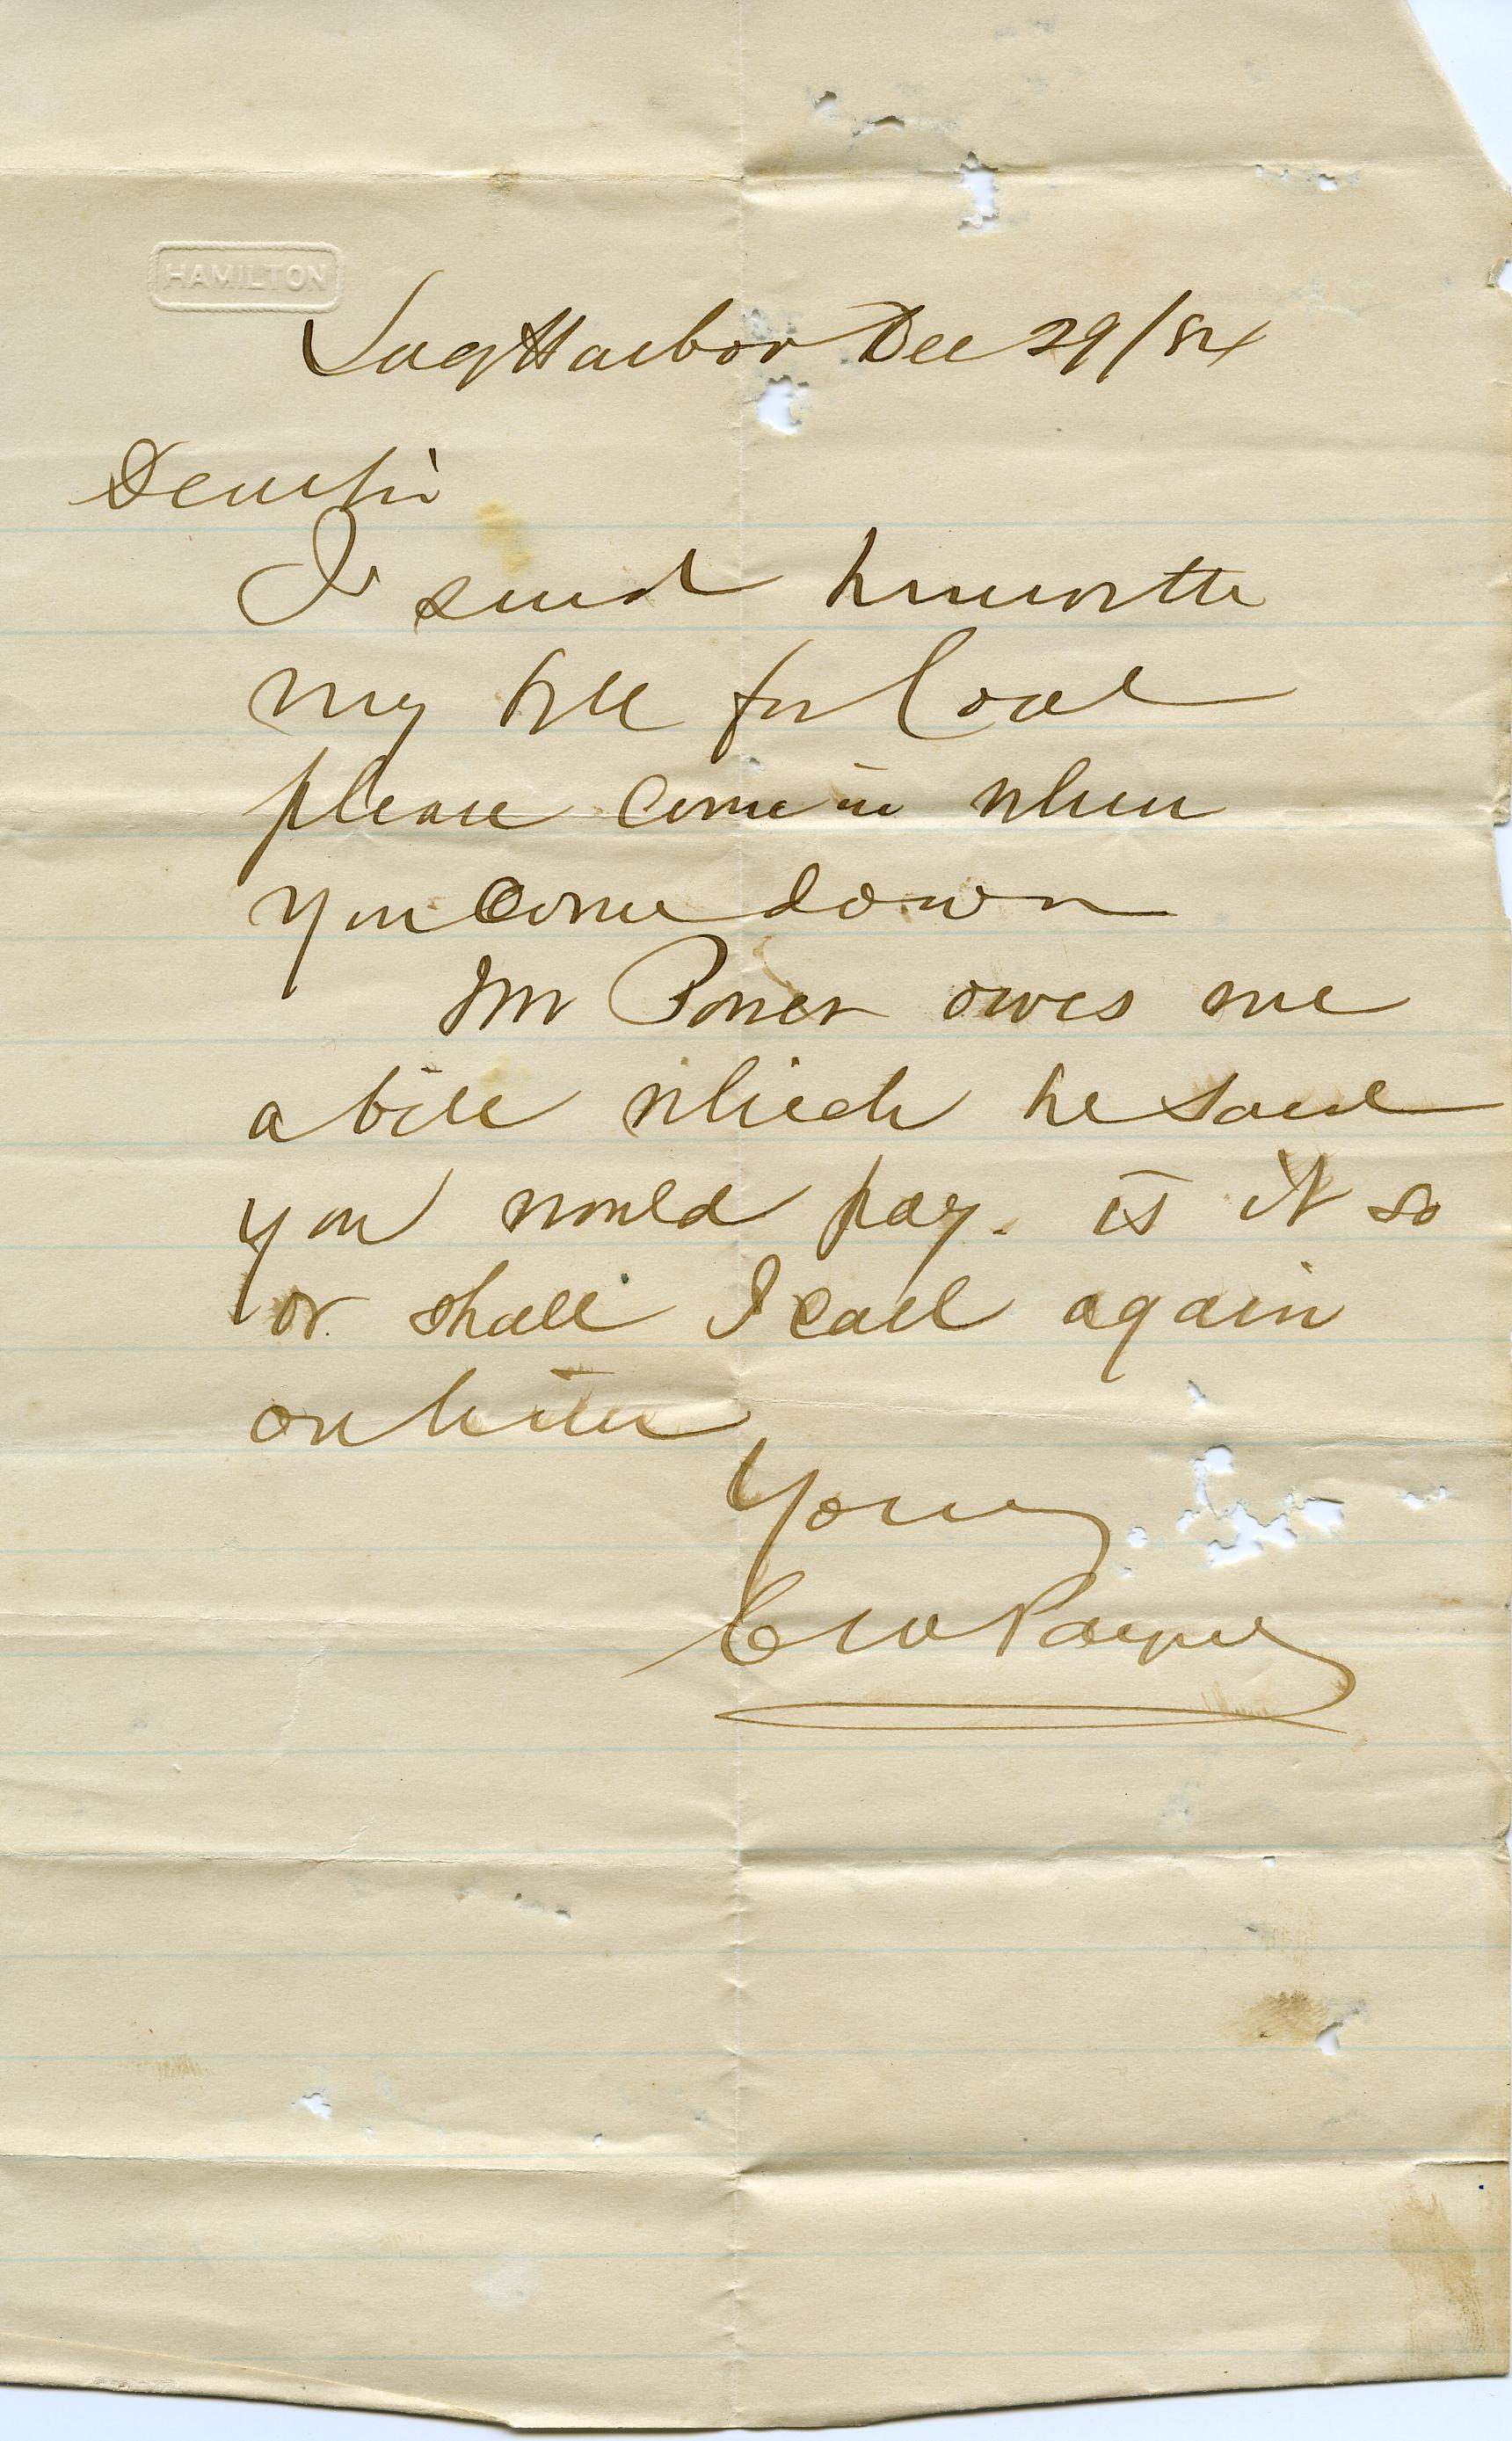 HAMILTON
Sag Harbor Dec 29/84
Dear Sir
I send herewith
my bill for Coal
please come in when
you come down
Mr owes me
a bill which he said
you would pay. is it so
or shall I call again
on him
Yours
C W Payne